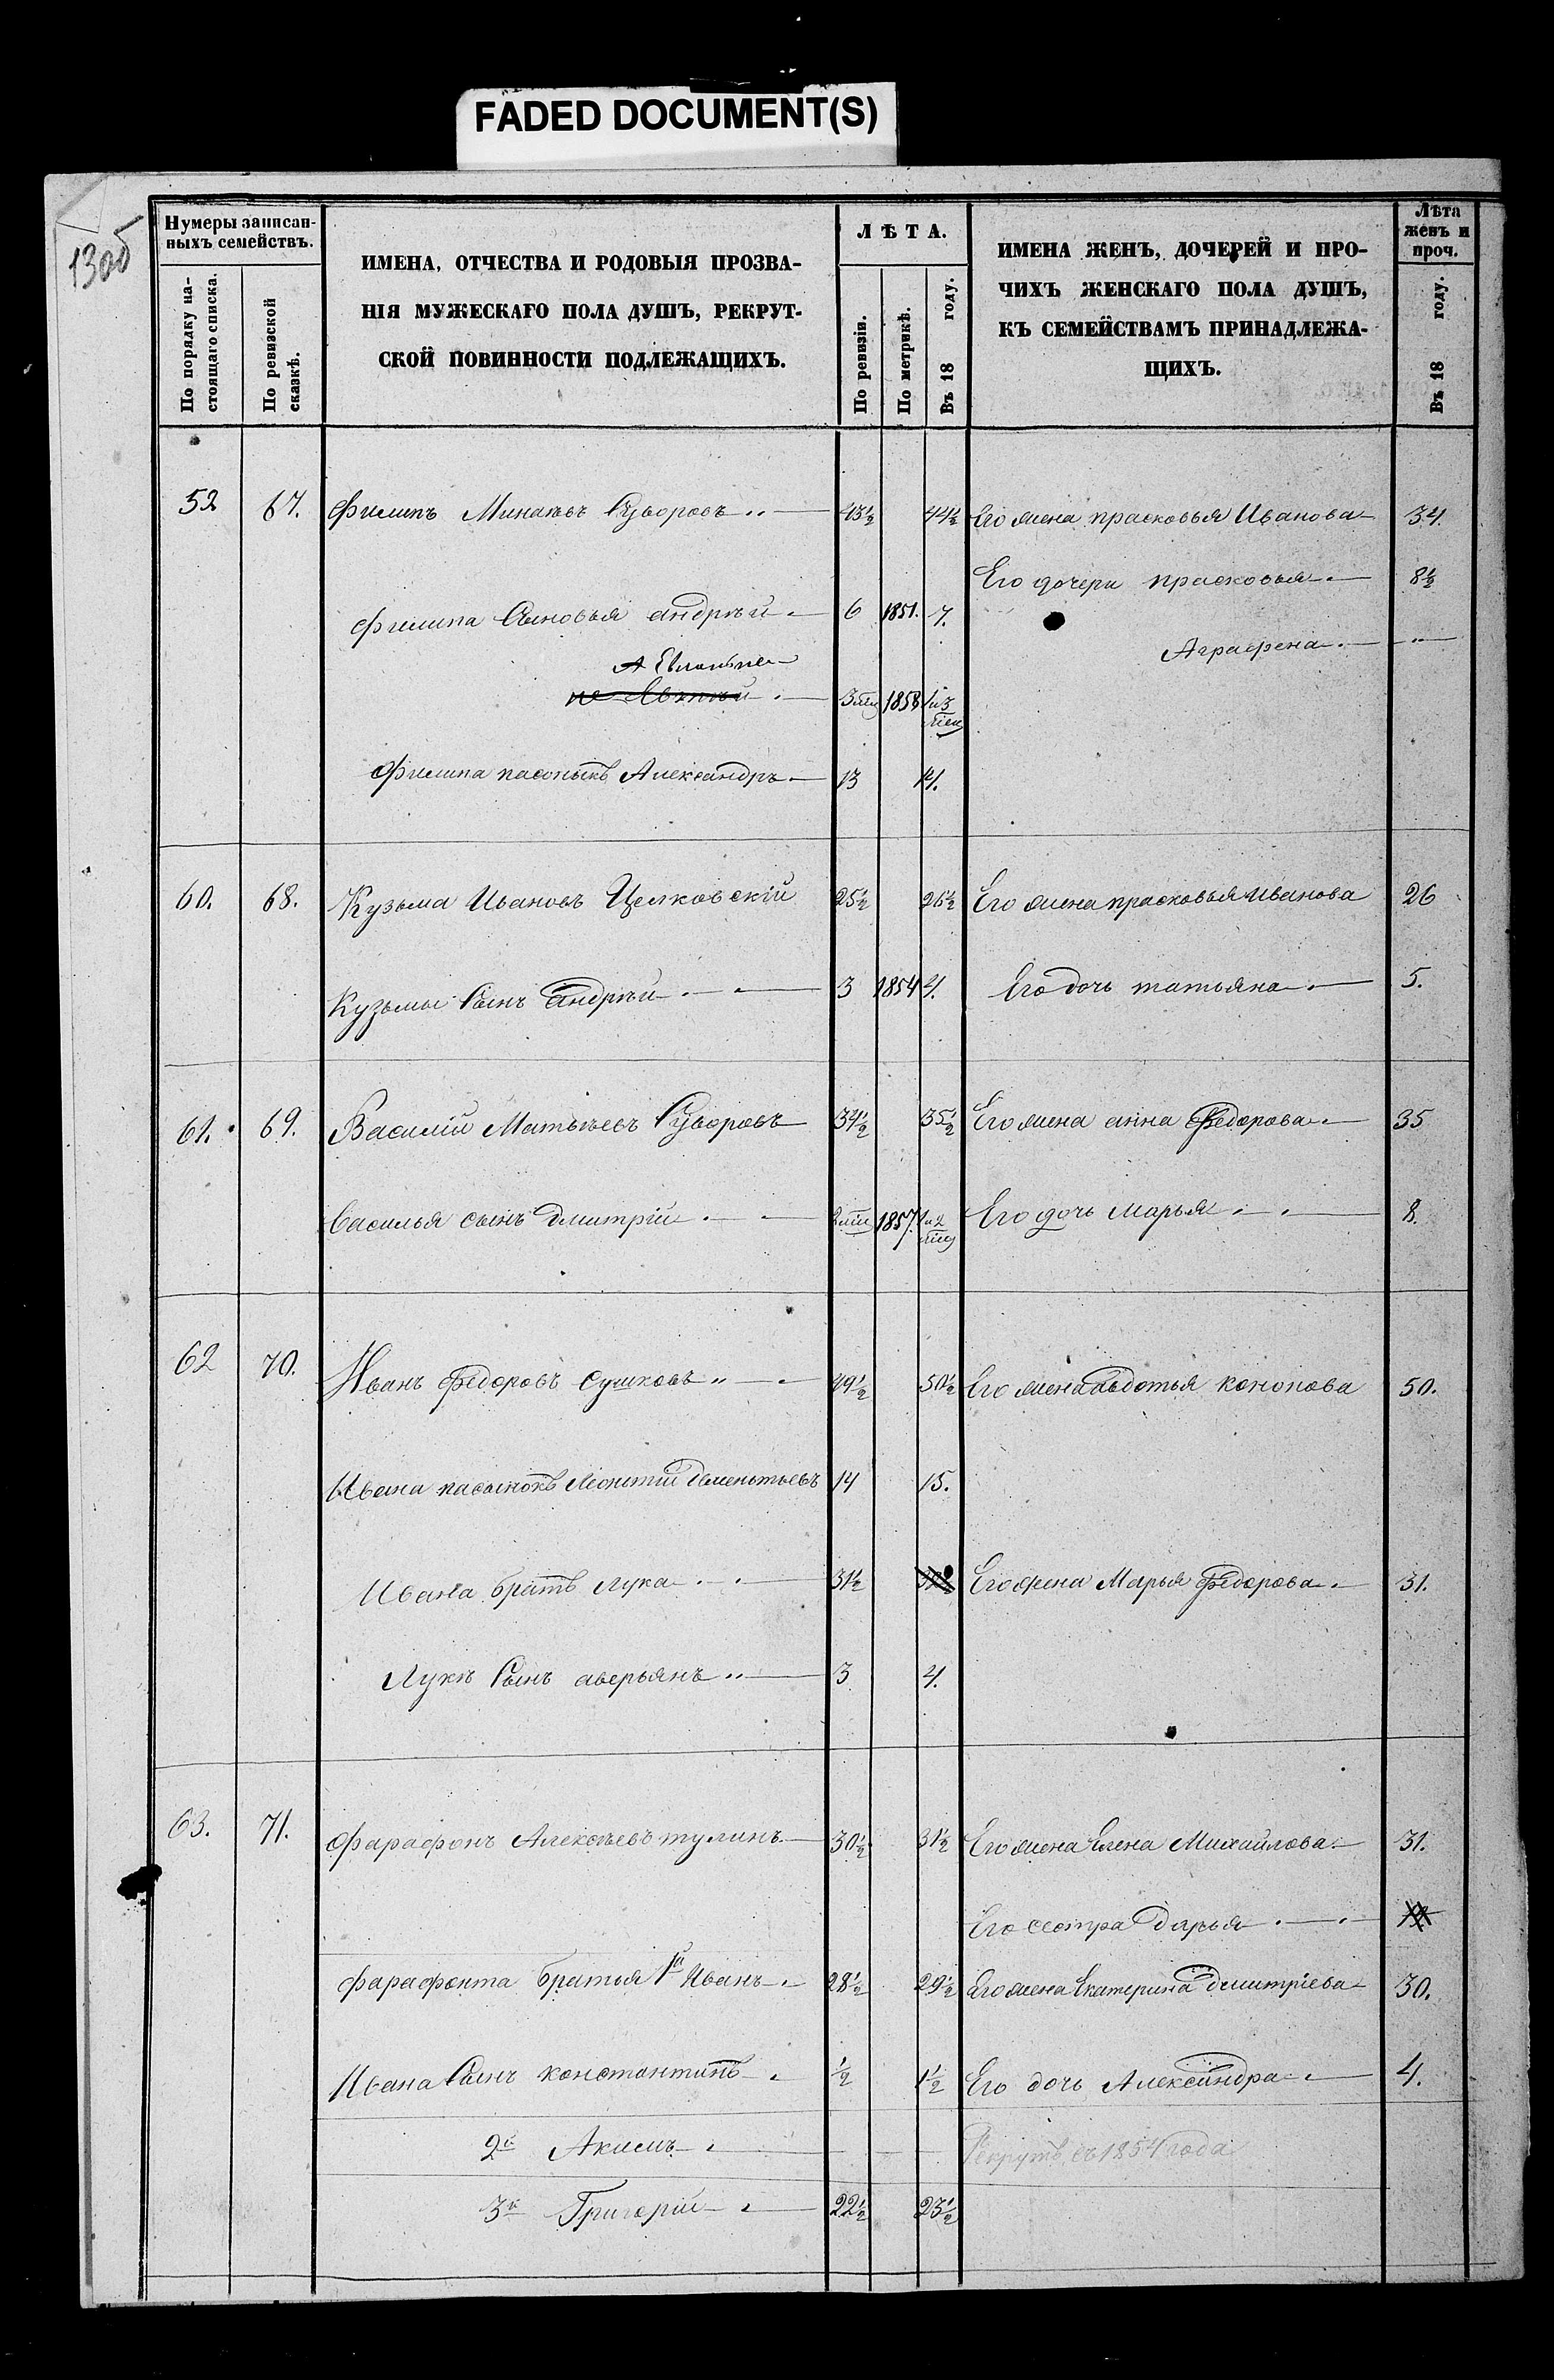 FADED DOCUMENT(S)
130об
Нумеры записан-
ныхъ семействъ.
По порядку на-
стоящаго списка.
По ревизской
сказкѣ.
ИМЕНА, ОТЧЕСТВА И РОДОВЫЯ ПРОЗВА-
НІЯ МУЖЕСКАГО ПОЛА ДУШЪ, РЕКРУТ-
СКОЙ ПОВИННОСТИ ПОДЛЕЖАЩИХЪ.
ЛѢТА.
По ревизіи.
По метрикѣ.
Въ 18 году.
ИМЕНА ЖЕНЪ, ДОЧЕРЕЙ И ПРО-
ЧИХЪ ЖЕНСКАГО ПОЛА ДУШЪ,
КЪ СЕМЕЙСТВАМЪ ПРИНАДЛЕЖА-
ЩИХЪ.
Лѣта
женъ и
проч.
Въ 18 году.
52 67. Филипъ Минаевъ Суворовъ 43½ 44½ Его жена прасковья Иванова 34.
Его дочери прасковья 8½
Филипа Сыновья андрѣй 6 1851. 7.
Аграфена
3 мѣс 1858 1 и 3 мѣс
Филипа пасынкъ Александръ 13 14.
60. 68. Кузьма Ивановъ Целковскій 25½ 26½ Его жена прасковья Иванова 26
Кузьмы Сынъ Андрѣй 3 1854 4. Его дочь татьяна 5.
61. 69. Василій Матвѣевъ Суворовъ 34½ 35½ Его жена анна Федорова 35
Василья сынъ дмитрій 2 мѣс 1857. 1 и 2 мѣс Его дочь Марья 8.
62 70. Иванъ Федоровъ Сушковъ 49½ 50½ Его жена авдотья кононова 50.
Ивана пасынокъ Леонтий дементьевъ 14 15.
Ивана братъ лука 31½ Его жена Марья Федорова 31.
Луки Сынъ аверьянъ 3 4.
63. 71. Фарафонъ Алексѣевъ тулинъ 30½ 31½ Его жена Елена Михайлова 31.
Его сестра дарья
Фарафонта братья 1й Иванъ 28½ 29½ Его жена Екатерина дмитріева 30.
Ивана Сынъ константинъ ½ 1½ Его дочь Александра 4.
2й Акимъ Рекрутъ съ 1854 года
3й Григорій 22½ 23½